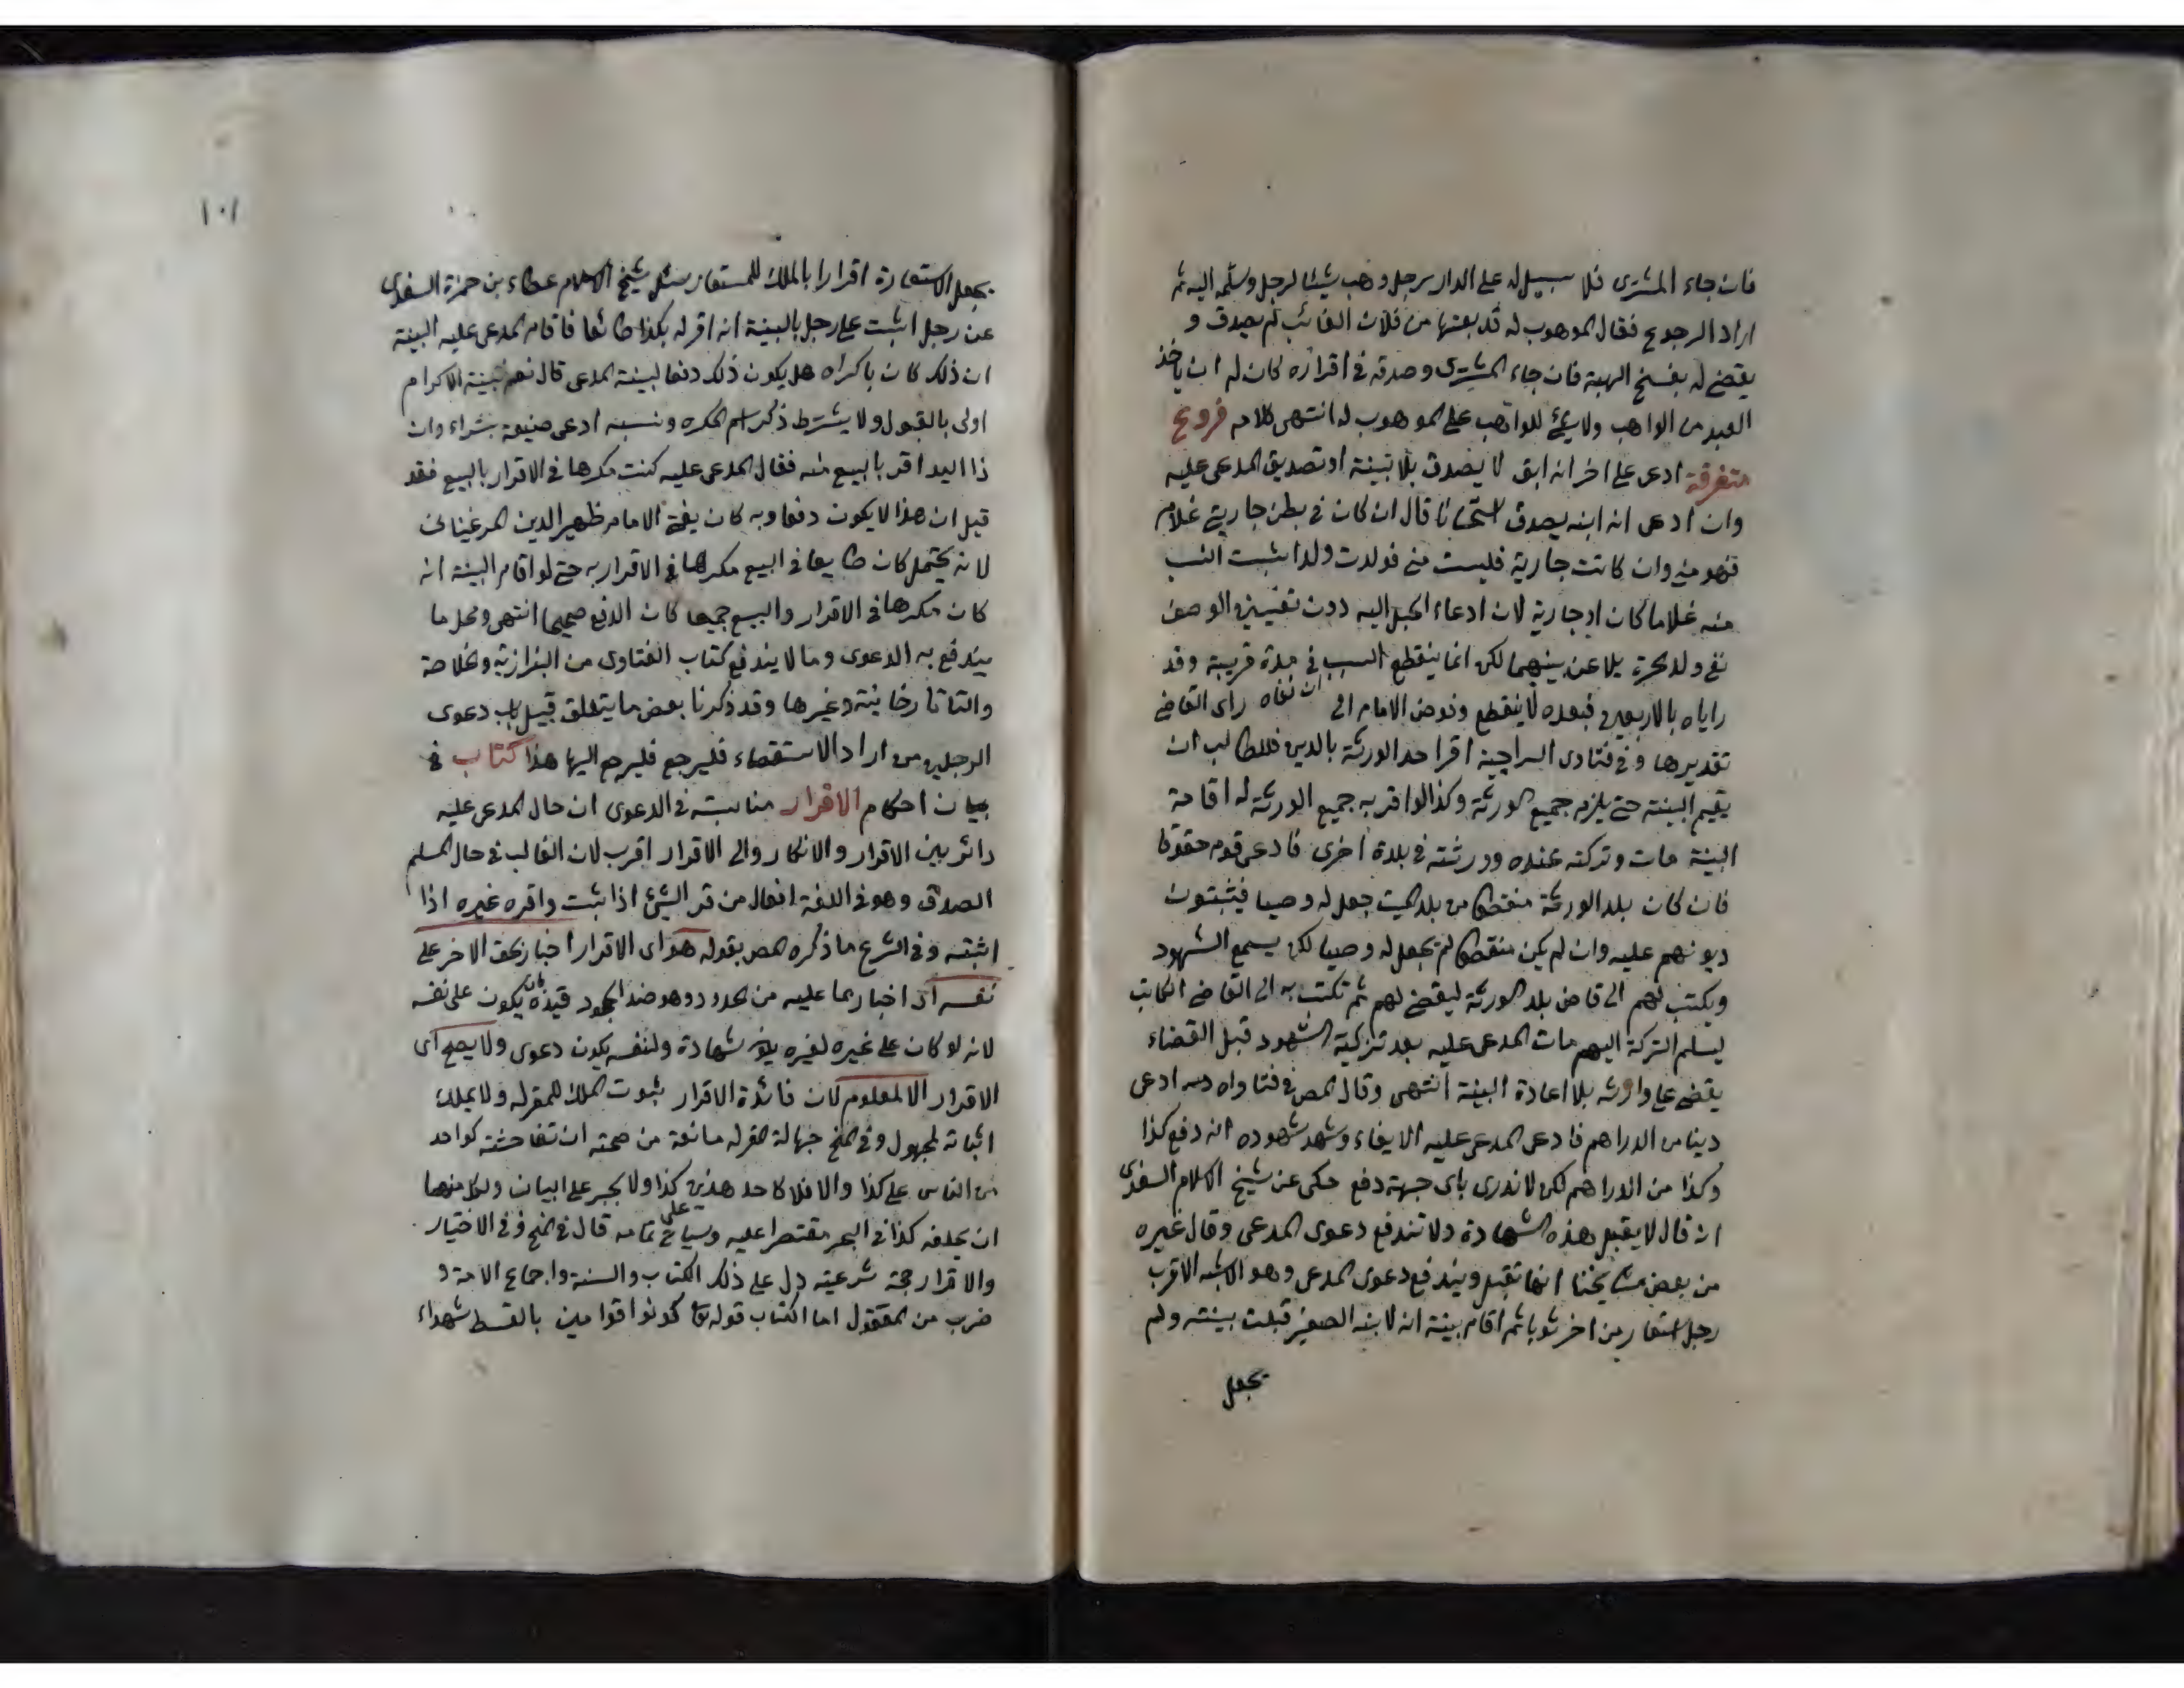 فان جاء المشترى فلا سبيل له على الدار رجل وهب شيئا لرجل وسلمه اليه ثم
اراد الرجوع فقال الموهوب له قد بعتها من فلان الغائب لم يصدق و
يقضى له بفسخ الهبة فان جاء المشترى وصدقه فى اقراره كان له ان ياخذ
العبد من الواهب ولا شئ للواهب على الموهوب له انتهى كلامه فروع
متفرقة ادعى على اخر انه ابق لا يصدق بلا بينة او تصديق المدعى عليه
وان ادعى انه ابنه يصدق استحسانا قال ان كان فى بطن جاريتى غلام
فهو منى وان كانت جارية فليست منى فولدت ولدا يثبت النسب
منه غلاما كان او جارية لان ادعاء الحبل اليه دون تعيين الوصف
نفى ولد حرة يلاعن بينهما لكن انما ينقطع النسب فى مدة قريبة وقد
راياه بالاربعين فبعده لا ينقطع وفوض الامام الى ان نفاه راى القاضى
تقديرها وفى فتاوى السراجية اقر احد الورثة بالدين فللطالب ان
يقيم البينة حتى يلزم جميع الورثة وكذا لو اقر به جميع الورثة له اقامة
البينة مات وتركته عنده وورثته فى بلدة اخرى فادعى قوم حقوقا
فان كان بلد الورثة منقطعا من بلد الميت جعل له وصيا فيثبتون
ديونهم عليه وان لم يكن منقطعا لم يجعل له وصيا لكن يسمع الشهود
ويكتب لهم الى قاضى بلد الورثة ليقضى لهم ثم تكتب به الى القاضى الكاتب
ليسلم التركة اليهم مات المدعى عليه بعد تزكية الشهود قبل القضاء
يقضى على وارثه بلا اعادة البينة انتهى وقال المص فى فتاواه ادعى
دينا من الدراهم فادعى المدعى عليه الايفاء وشهد شهوده انه دفع كذا
وكذا من الدراهم لكن لا ندرى باى جهة دفع حكى عن شيخ الاسلام السغدى
انه قال لا يقبل هذه الشهادة ولا تندفع دعوى المدعى وقال غيره
من بعض مشايخنا انها تقبل ويندفع دعوى المدعى وهو الاشبه الاقرب
رجل استعار من اخر ثوبا ثم اقام بينة انه لابنه الصغير قبلت بينته ولم
يجعل
١٠١
يجعل الاستعارة اقرارا بالملك للمستعار سئل شيخ الاسلام عطاء بن حمزة السغدى
عن رجل اثبت على رجل بالبينة انه اقر له بكذا طائعا فاقام المدعى عليه البينة
ان ذلك كان باكراه هل يكون ذلك دفعا لبينة المدعى قال نعم بينة الاكرام
اولى بالقبول ولا يشترط ذكر اسم المكره ونسبه ادعى ضيعة بشراء وان
ذا اليد اقر بالبيع منه فقال المدعى عليه كنت مكرها فى الاقرار بالبيع فقد
قيل ان هذا لا يكون دفعا وبه كان يفتى الامام ظهير الدين المرغينانى
لانه يحتمل كان طايعا فى البيع مكرها فى الاقرار به حتى لو اقام البينة انه
كان مكرها فى الاقرار والبيع جميعا كان الدفع صحيحا انتهى ومحل ما
يندفع به الدعوى وما لا يندفع كتاب الفتاوى من البزازية وخلاصة
والتاتارخانية وغيرها وقد ذكرنا بعض ما يتعلق قبيل باب دعوى
الرجلين من اراد الاستقصاء فليرجع فليرجع اليها هذا كتاب فى
بيان احكام الاقرار مناسبته فى الدعوى ان حال المدعى عليه
دائر بين الاقرار والانكار والى الاقرار اقرب لان الغالب فى حال المسلم
الصدق وهو فى اللغة افعال من قر الشئ اذا ثبت واقره غيره اذا
اثبته وفى الشرع ما ذكره المص بقوله هو اى الاقرار اخبار بحق الاخر على
نفسه اى اخبار بما عليه من الحدود وهو ضد الجحود قيده بان يكون على نفسه
لانه لو كان على غيره لغيره يكون شهادة ولنفسه يكون دعوى ولا يصح اى
الاقرار الا لمعلوم لان فائدة الاقرار ثبوت الملك للمقر له ولا يملك
اثباته لمجهول وفى المنح جهالة المقر له مانعة من صحته ان تفاحشت كواحد
من الناس على كذا والا فلا كاحد هذين على كذا ولا يجبر على البيان ولكل منهما
ان يحلفه كذا فى البحر مقتصرا عليه وسياتى تمامه قال فى المنح وفى الاختيار
والاقرار حجة شرعية دل على ذلك الكتاب والسنة واجماع الامة و
ضرب من المعقول اما الكتاب قوله تعا كونوا قوامين بالقسط شهداء